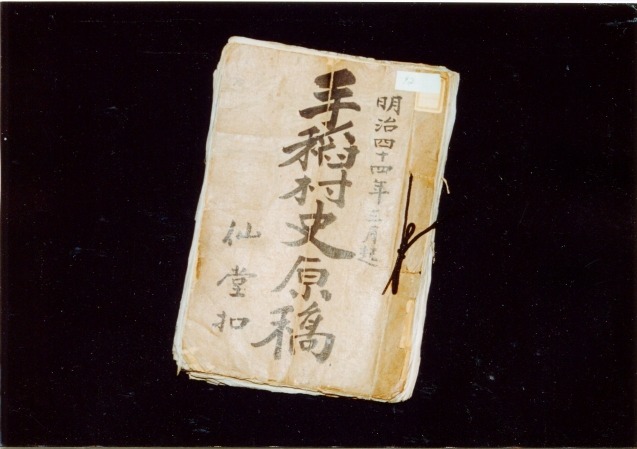 明治四十四年三月起
手稲村史原稿
仙堂扣